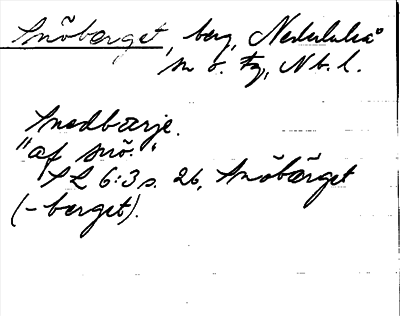 Snöbærget, berg, Nederluleå
sn o. tg, Nb. l.
Snedbærje.
"af snö."
SL 6:3 s. 26, Snöbärget
(-berget).